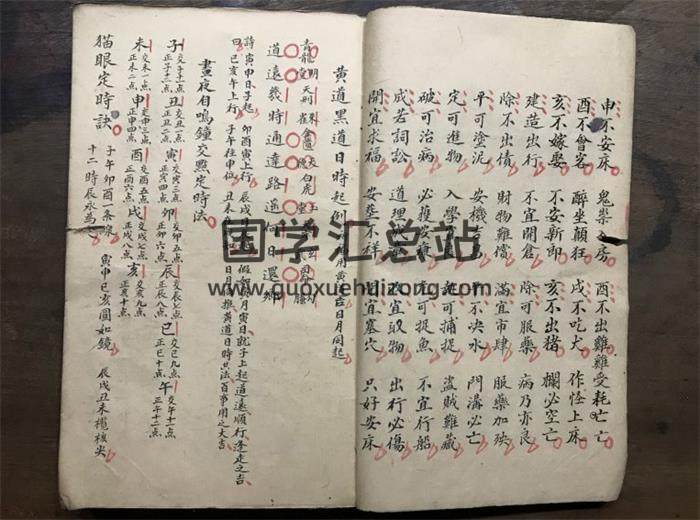 申不安床 鬼祟入房 酉不出雞 雞受耗亡
酉不會客 醉坐顛狂 戌不吃犬 作怪上床
亥不嫁娶 不安新郎 亥不出猪 欄必空亡
建造出行 不宜開倉 除可服藥 病乃亦良
除不出債 財物難擋 滿宜市肆 服藥加殃
平可塗泥 安機吉 平不決水 門溝必亡
定可進物 入學 捕捉 盜賊難藏
破可治病 必獲安康 可捉魚 不宜行船
成若詞訟 道理 收宜取物 出行必傷
開宜求福 安葬不祥 閉宜塞穴 只好安床
黃道黑道日時起例 用黃吉日月同起
青龍 明堂 天刑 朱雀 金匱 天德 白虎 玉堂
道遠幾時通達路遥何日還鄉
詩曰 寅申日子起 卯酉寅上行 辰戌
巳亥午上行 子午往申位 丑未
假如 月寅日就子上起道遠順行逢走之吉
日月俱推黃道日時共法百事用之大吉
晝夜自鳴鐘交點定時法
子 交子十一点 正子十二点
丑 交丑一点
寅 交寅三点 正寅四点
卯 交卯五点 正卯六点
辰 交辰七点 正辰八点
巳 交巳九点 正巳十点
午 交午十一点 正午十二点
未 交未一点 正未二点
申 交申三点 正申四点
酉 交酉五点 正酉六点
戌 交戌七点 正戌八点
亥 交亥九点 正亥十点
貓眼定時訣
子午卯酉一条線 寅申巳亥圓如鏡 辰戌丑未欖核尖
十二時辰永為
国学汇总站
www.guoxuehuizong.com